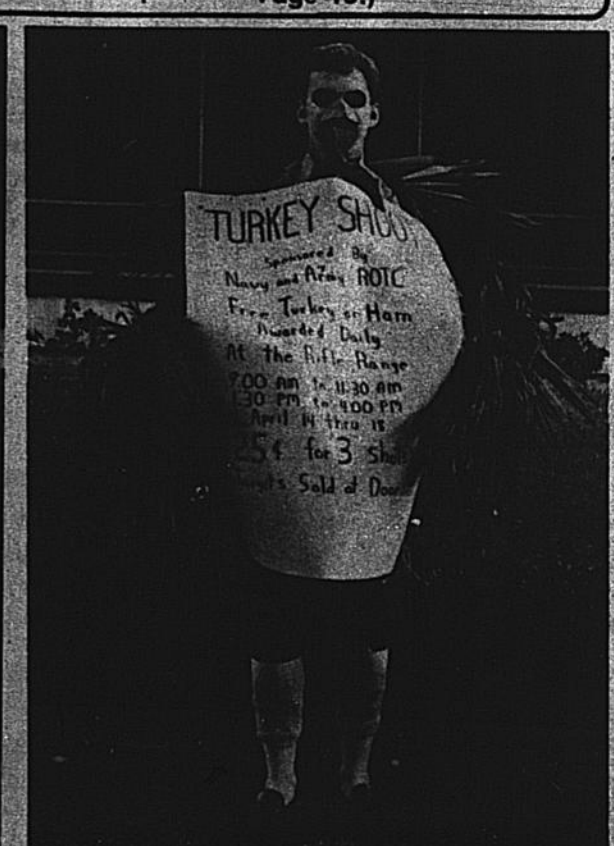 Page
TURKEY SHOOT
Sponsored By
Navy and Army ROTC
Free Turkey or Ham
Awarded Daily
At the Rifle Range
9:00 AM to 11:30 AM
1:30 PM to 4:00 PM
April 14 thru 18
25¢ for 3 Shots
Sold at Door